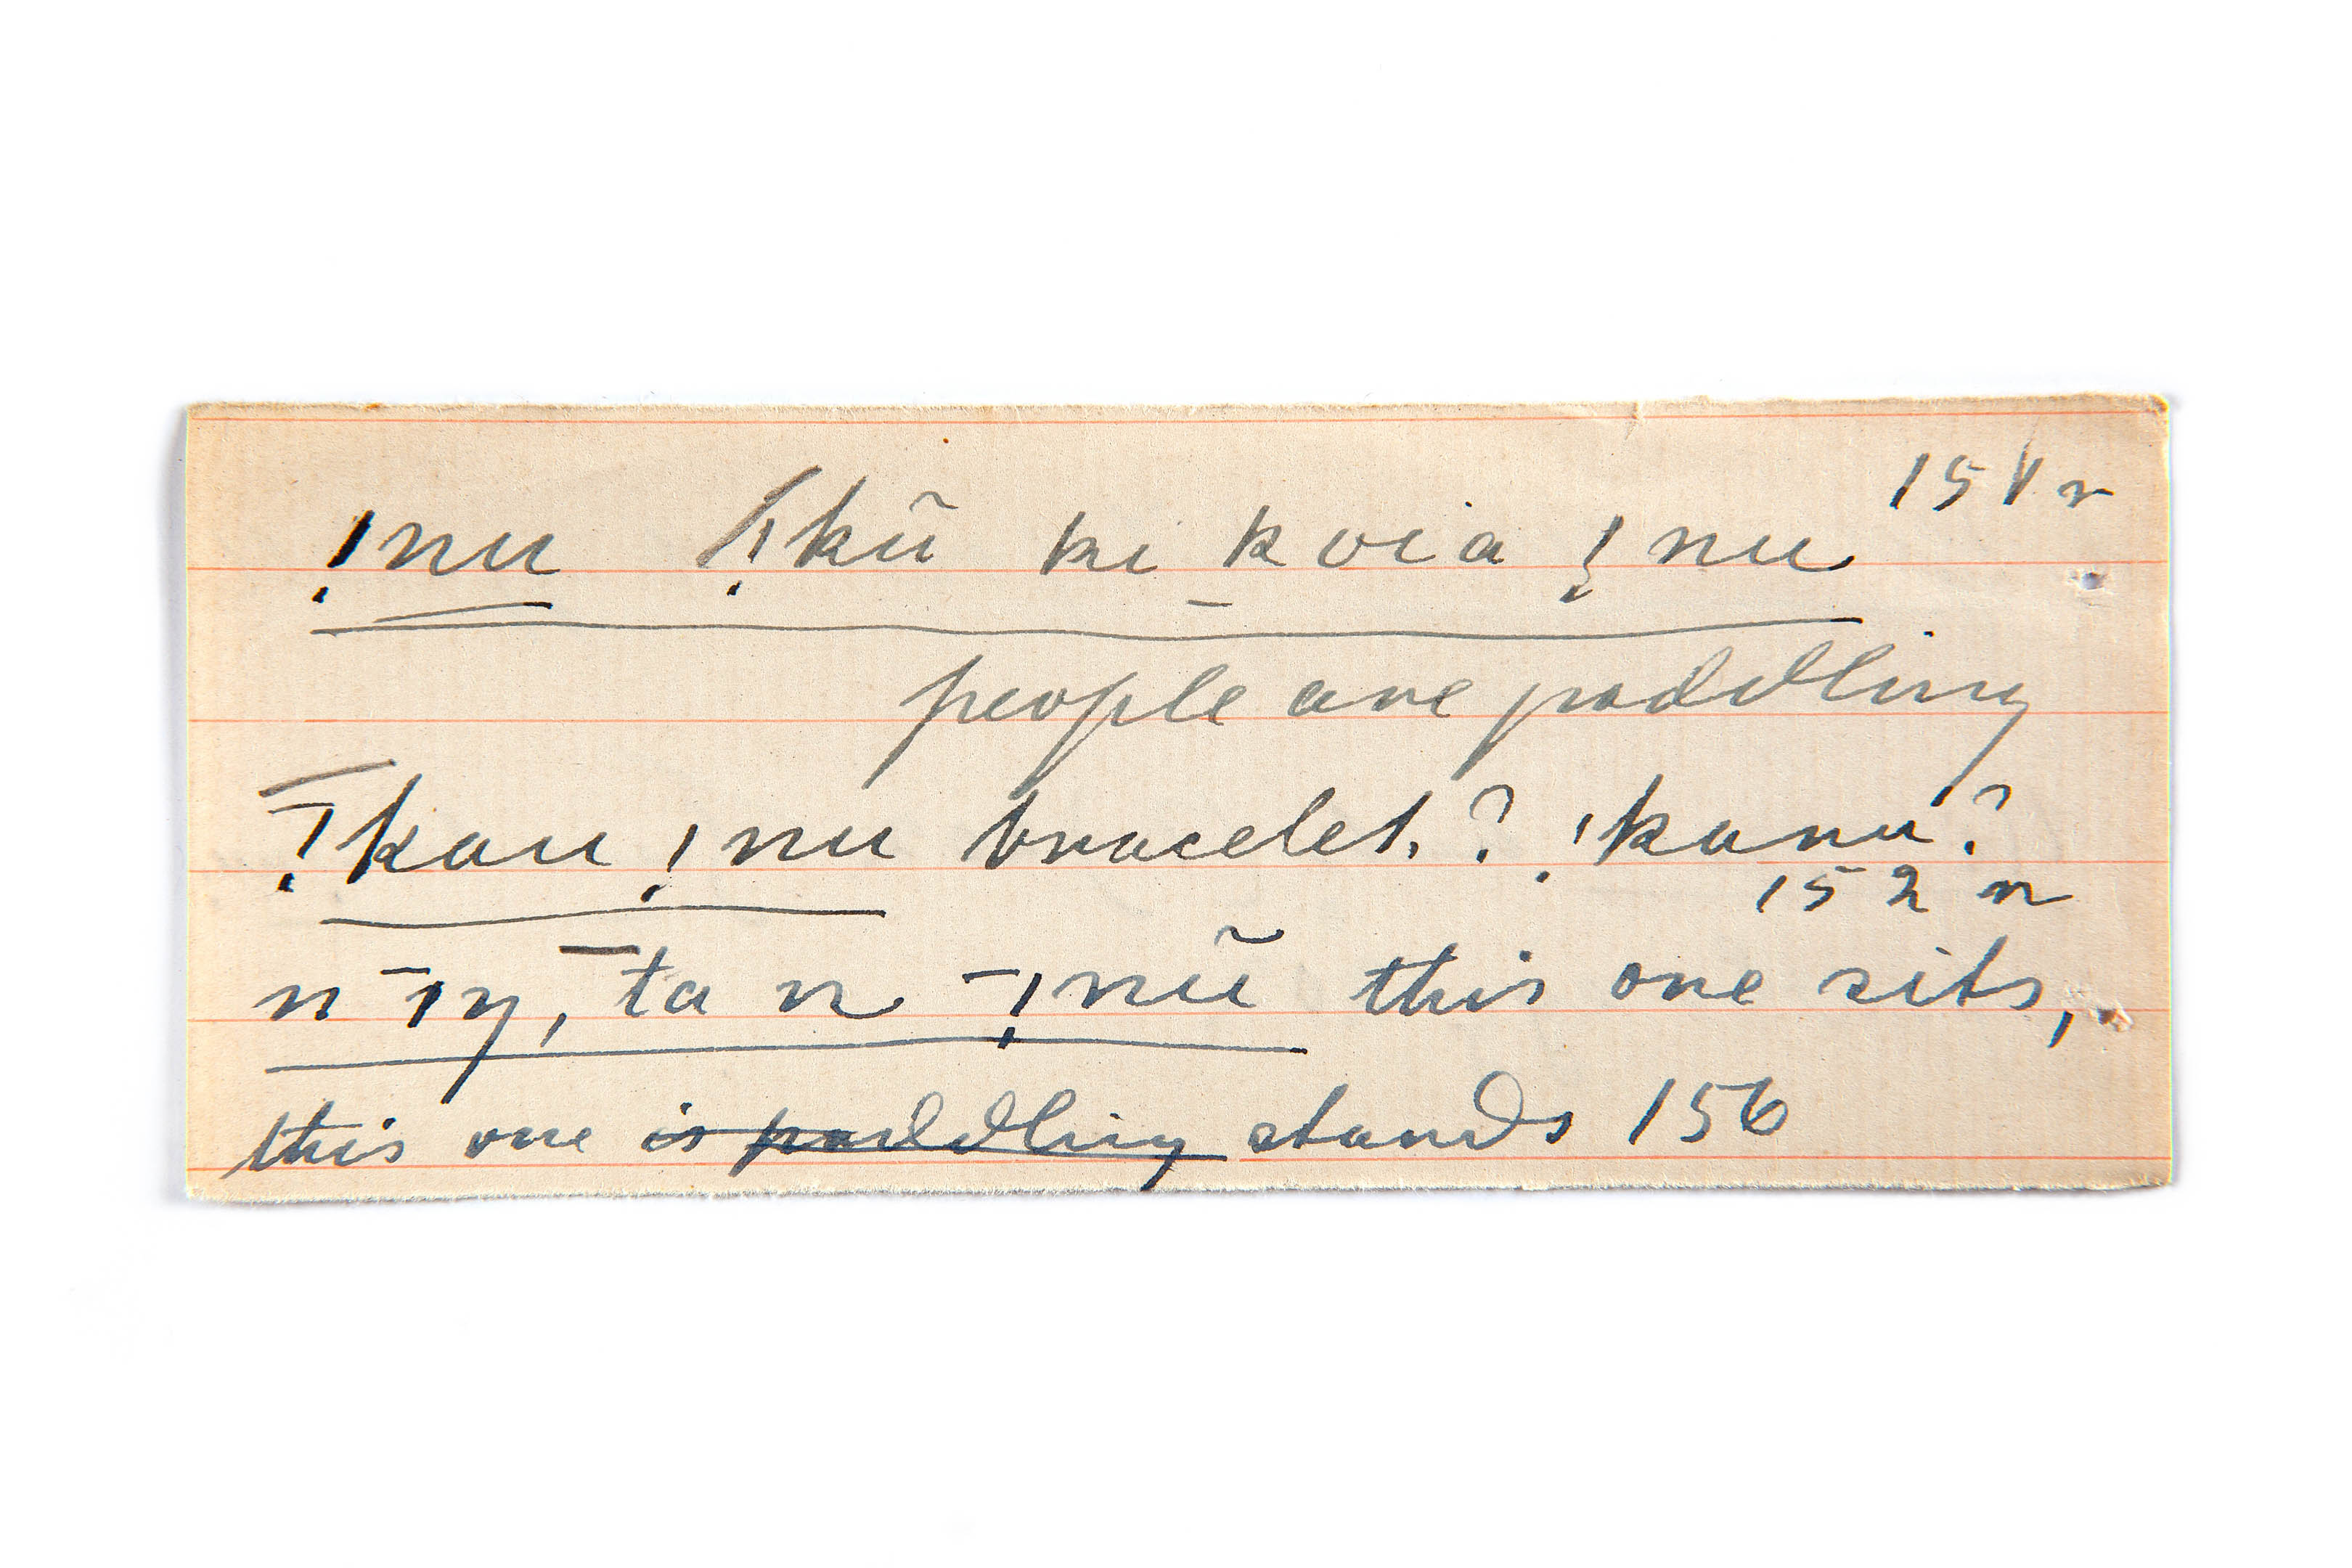 ı̣nu ı̣̄kũ ki k via ı̣nu 151 n
people are paddling
ı̣̄kau ı̣nu bracelet.? ı̣kanu?
152 n
n ī y, ta n ı̣̄nũ this one sits,
this one is paddling stands 156